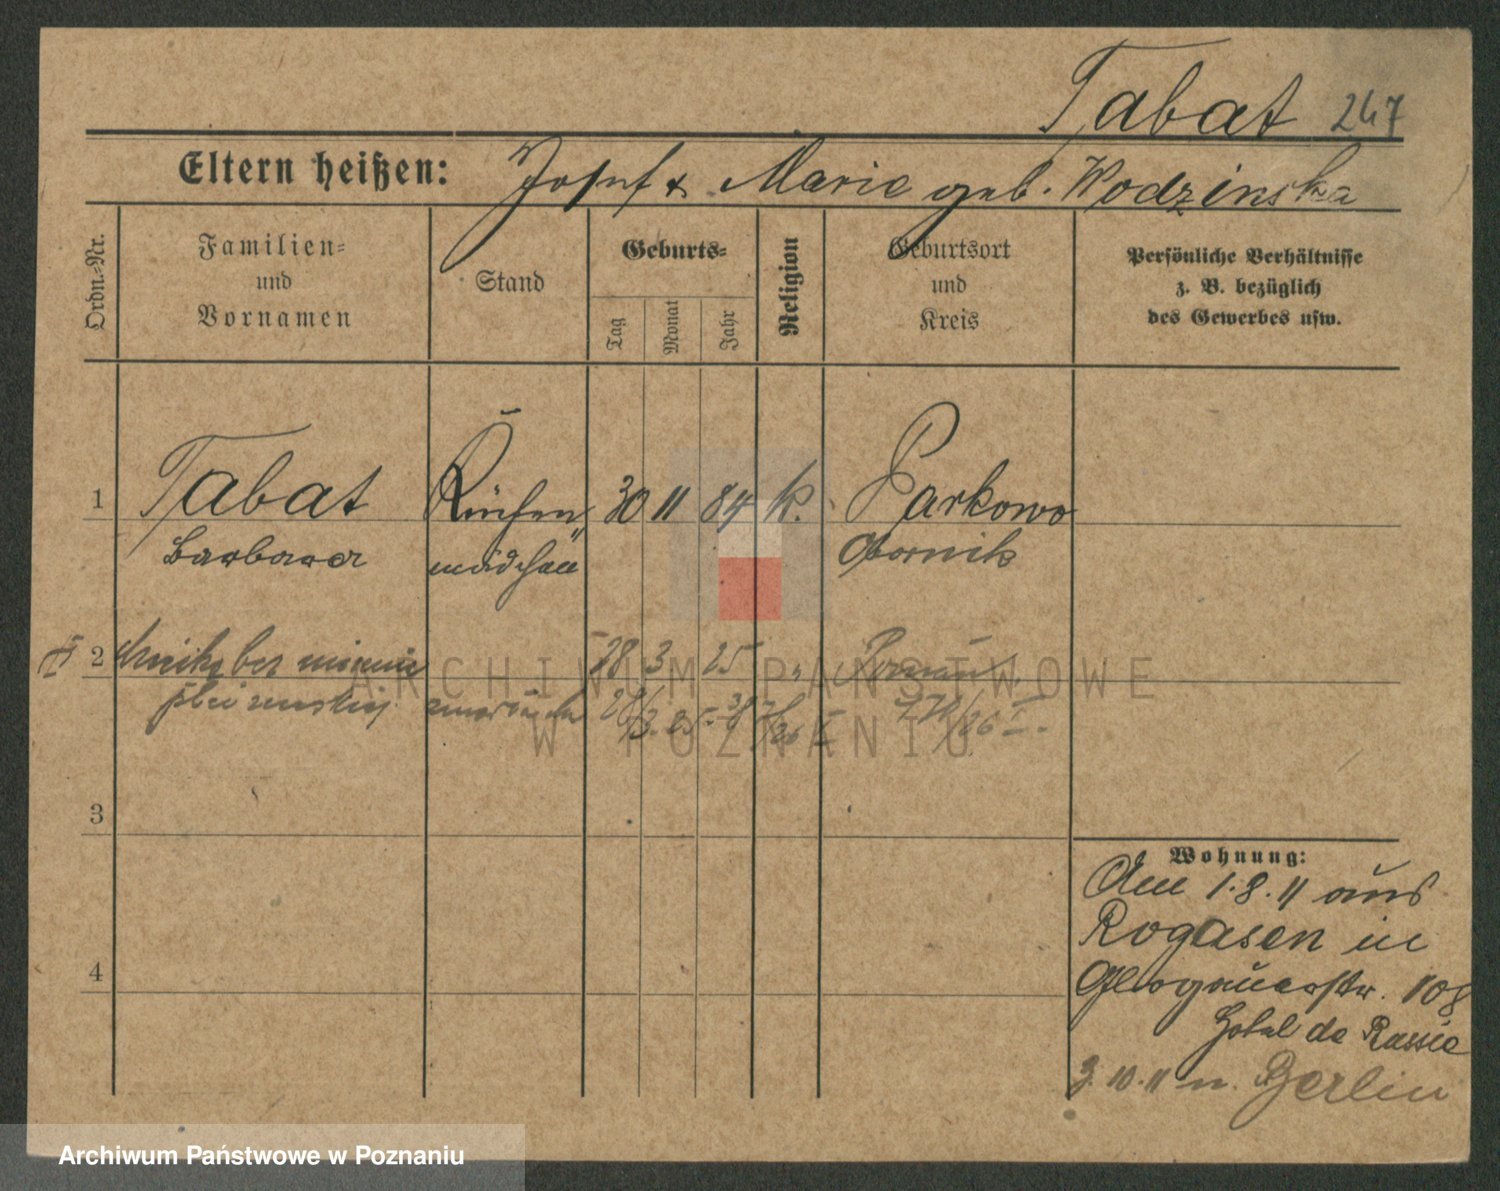 Tabat 247
Eltern heißen: Josef & Marie geb. Wodzinska
Ordn.-Nr.
Familien-
und
Vornamen
Stand
Geburts-
Tag
Monat
Jahr
Religion
Geburtsort
und
Kreis
Persönliche Verhältnisse
z. B. bezüglich
des Gewerbes usw.
1 Tabat Küchen 30 11 84 k. Parkowo
Barbara mädchen Obornik
2 28 3 25
ARCHIWUM PAŃSTWOWE
W POZNANIU
3
4
Wohnung:
Am 1.8.11 aus
Rogasen in
Glogauerstr. 108
Hotel de Russie
3.10.11 n. Berlin
Archiwum Państwowe w Poznaniu